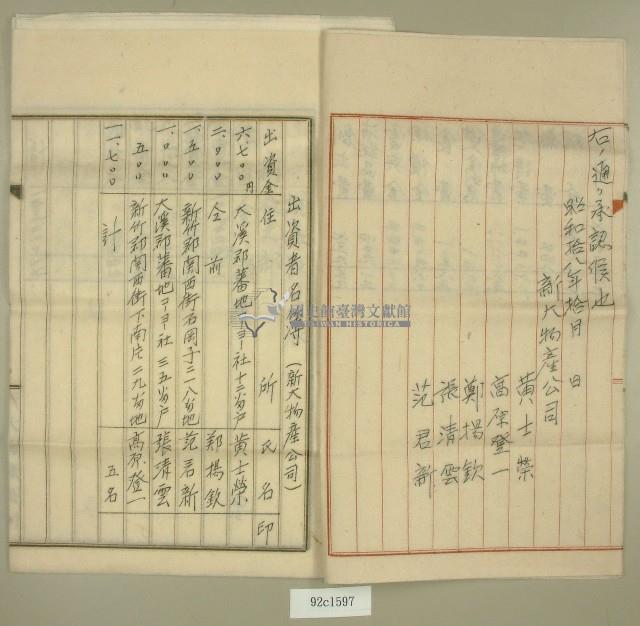 右ノ通リ承認候也
昭和拾八年拾月 日
新大物産公司
黄士榮
高原登一
鄭揚欽
張清雲
范君新
出資者名簿(新大物産公司)
出資金 住所 氏名 印
六、七〇〇円 大溪郡蕃地 社十三番戸 黄士榮
二、〇〇〇 仝前 鄭揚欽
一、五〇〇 新竹郡関西街石岡子二一八番地 范君新
一、〇〇〇 大溪郡蕃地 社三五番戸 張清雲
五〇〇 新竹郡関西街下南片二九番地 高原登一
一一、七〇〇 計 五名
國史館臺灣文獻館
TAIWAN HISTORICA
92c1597